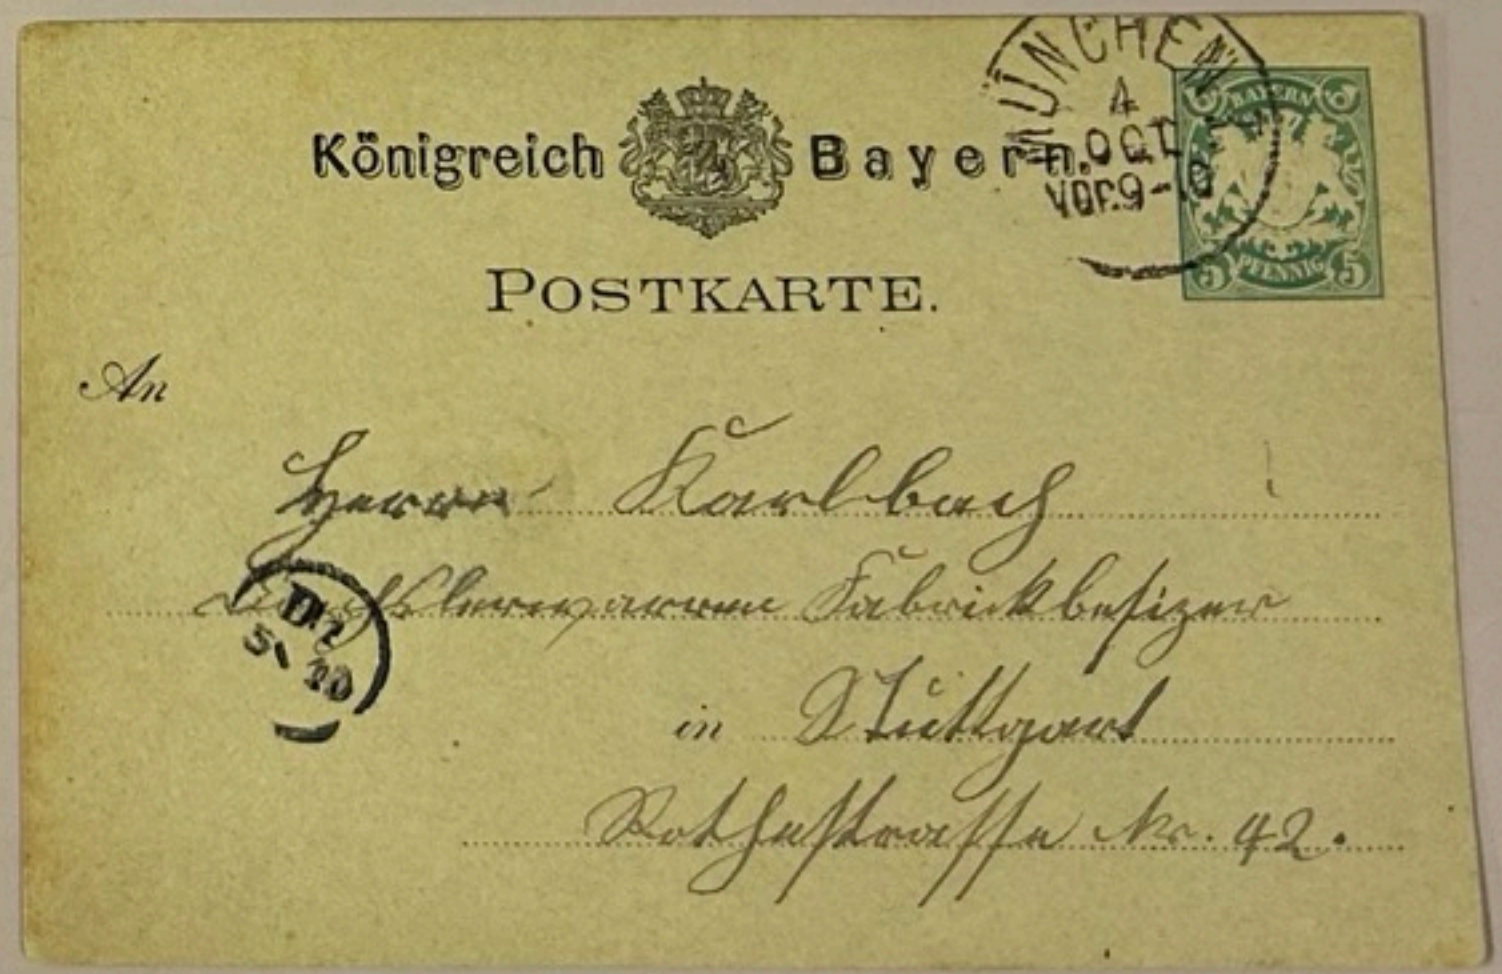 MÜNCHEN
4
OCT
VOR.9-10
BAYERN
5 PFENNIG 5
Königreich Bayern.
POSTKARTE.
An
Herrn Karlbach
Fabrickbesizer
in Stuttgart
Rothestrasse Nr. 42.
5 10